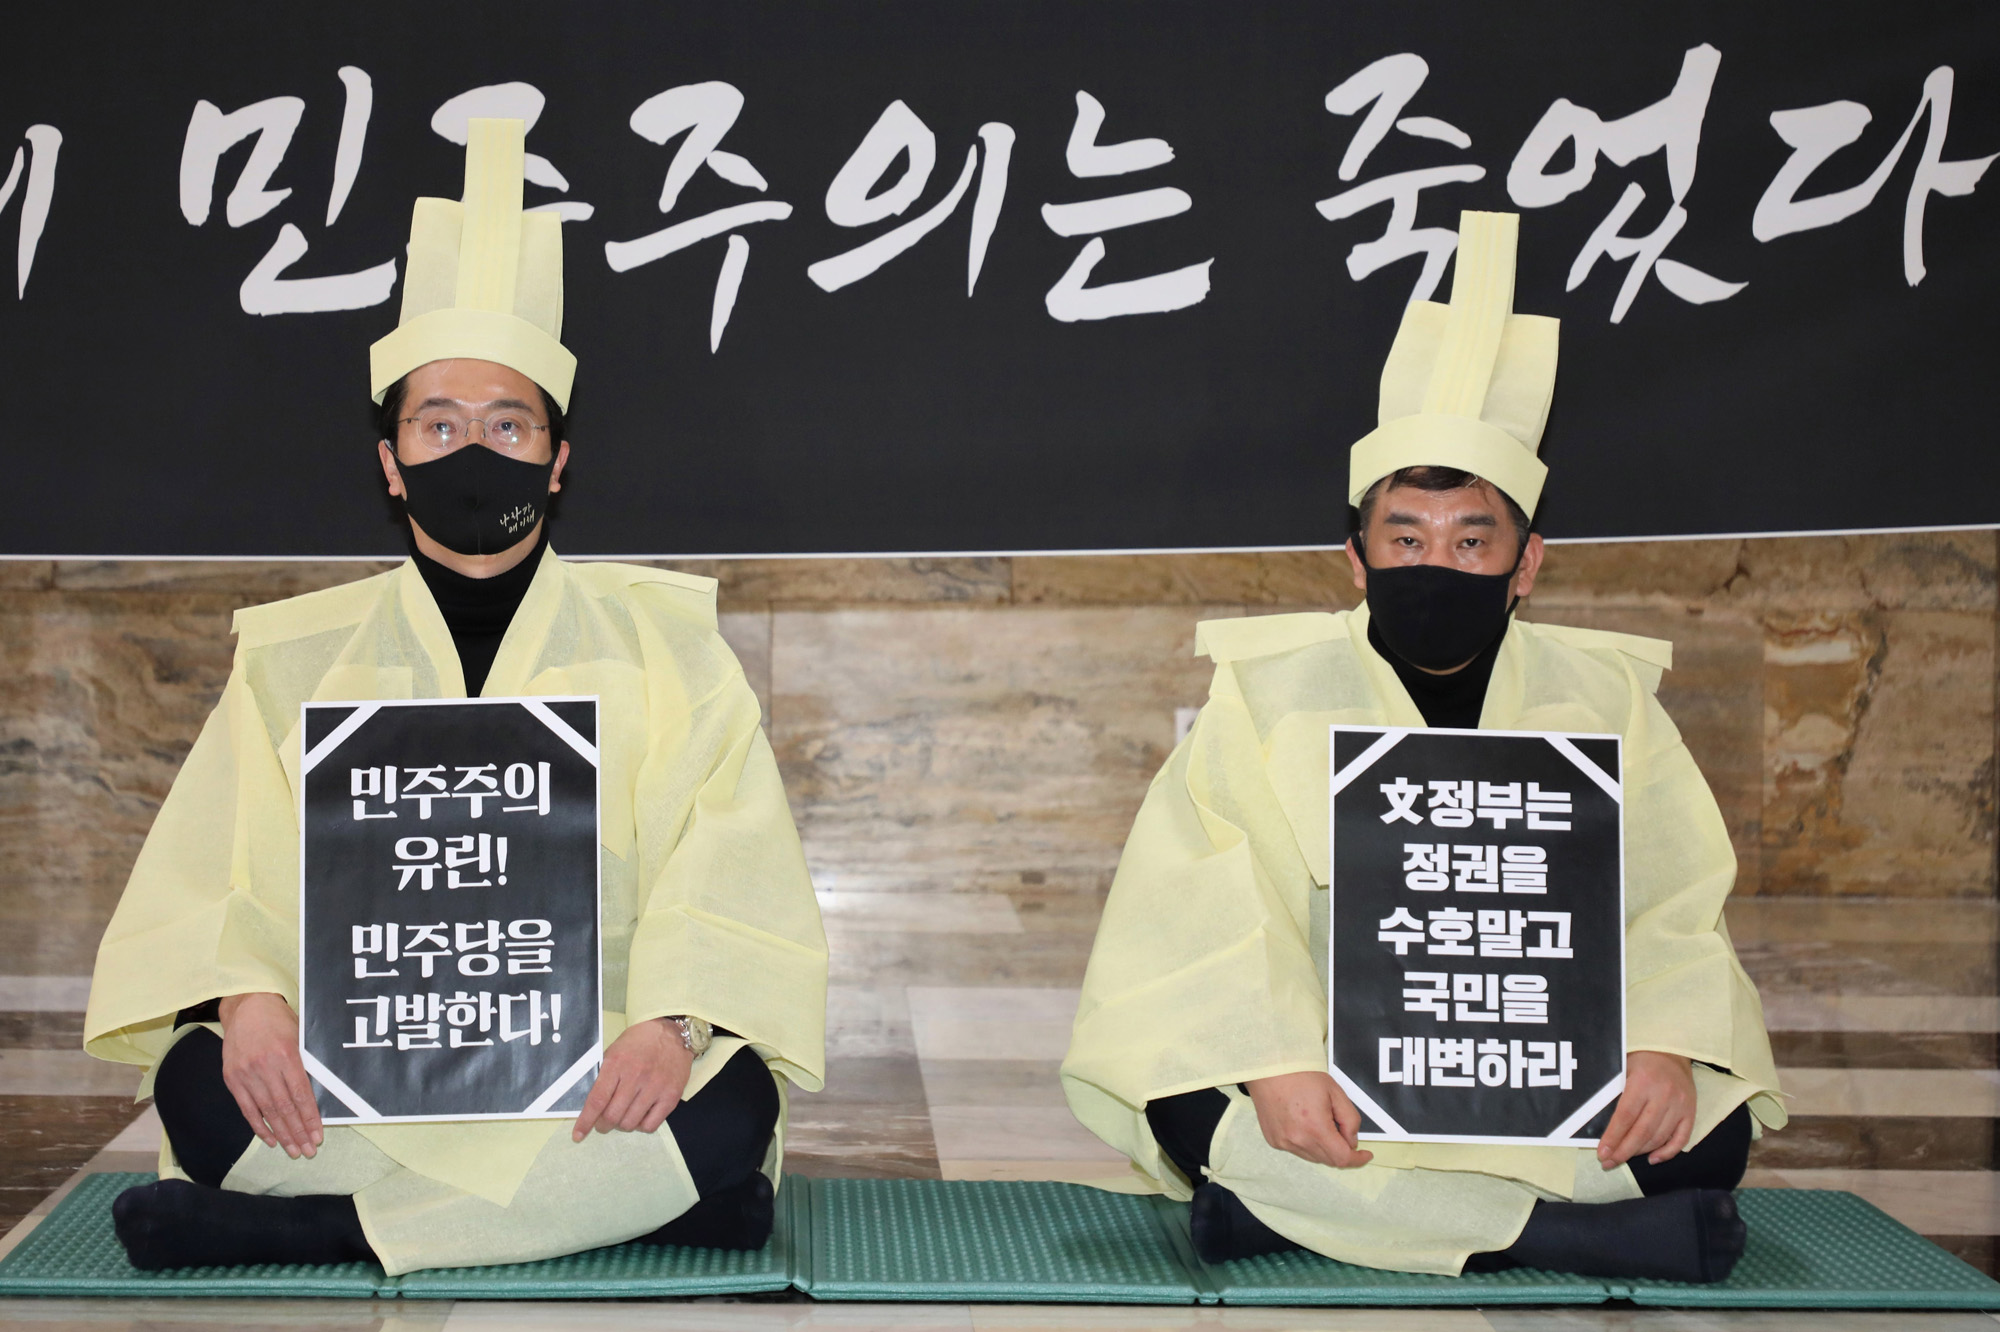 민주주의는 죽었다
나라가
왜 이래
민주주의
유린!
민주당을
고발한다!
文정부는
정권을
수호말고
국민을
대변하라